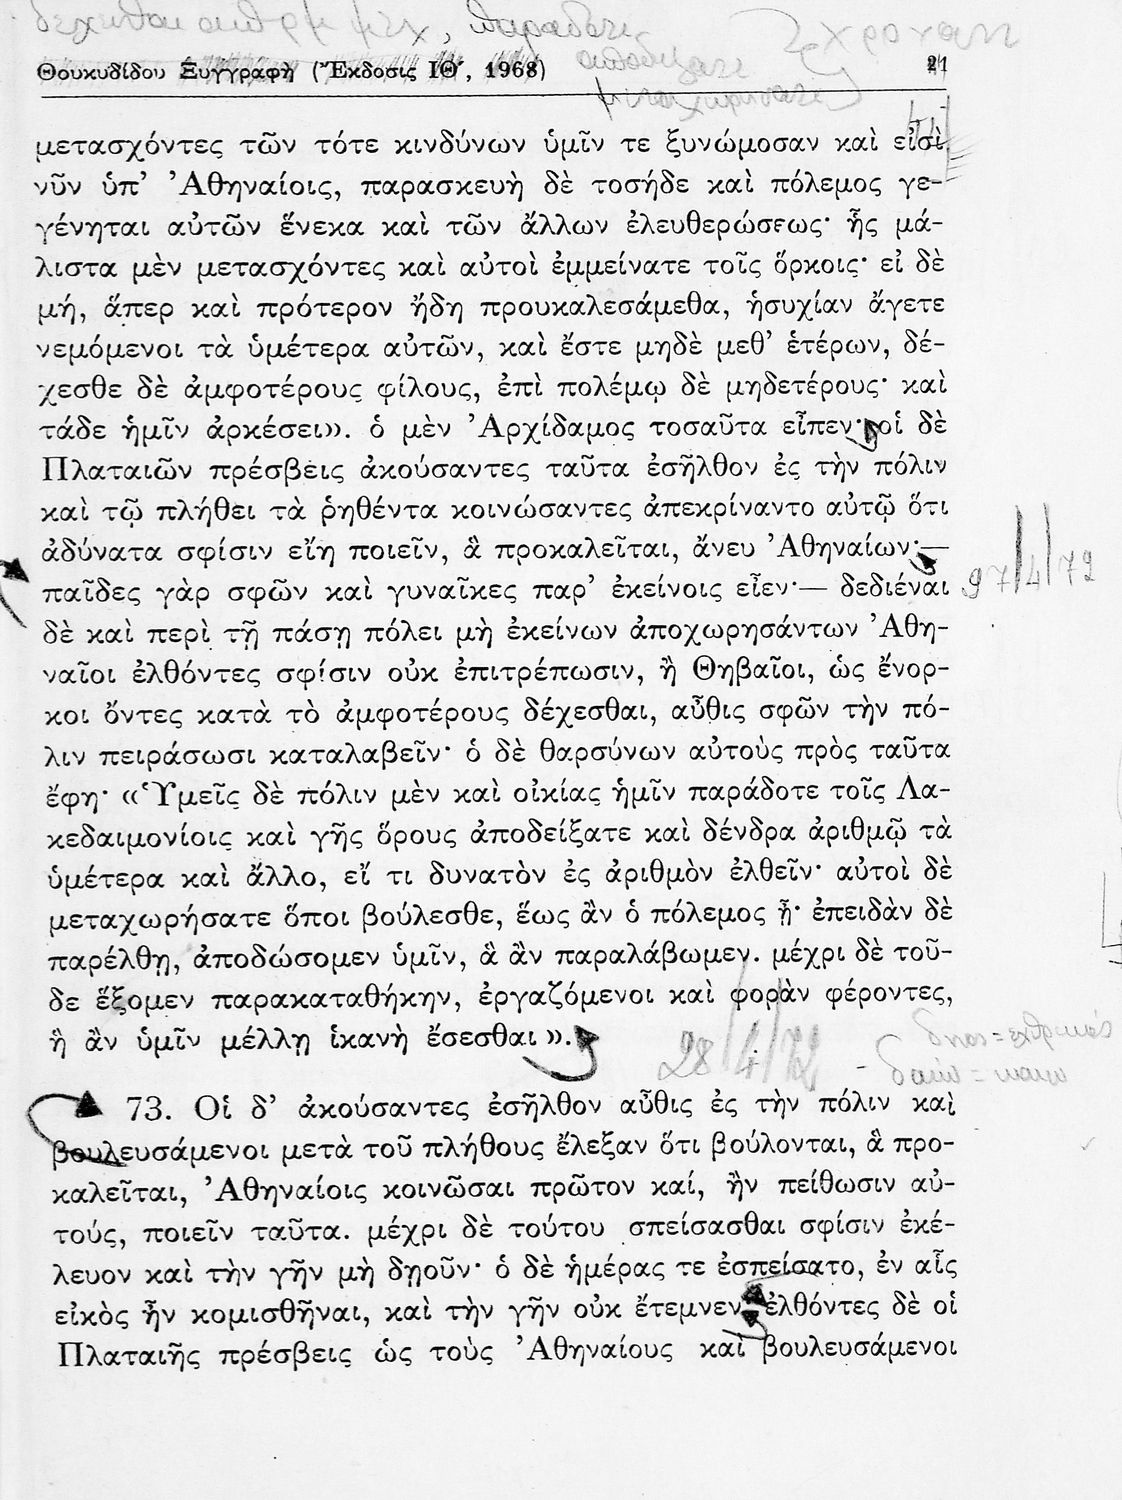 παραδοτε
Θουκυδίδου Ξυγγραφὴ (Ἔκδοσις ΙΘ΄, 1968) 21
μετασχόντες τῶν τότε κινδύνων ὑμῖν τε ξυνώμοσαν καὶ εἰσὶ
νῦν ὑπ’ Ἀθηναίοις, παρασκευὴ δὲ τοσήδε καὶ πόλεμος γε-
γένηται αὐτῶν ἕνεκα καὶ τῶν ἄλλων ἐλευθερώσεως· ἧς μά-
λιστα μὲν μετασχόντες καὶ αὐτοὶ ἐμμείνατε τοῖς ὅρκοις· εἰ δὲ
μή, ἅπερ καὶ πρότερον ἤδη προυκαλεσάμεθα, ἡσυχίαν ἄγετε
νεμόμενοι τὰ ὑμέτερα αὐτῶν, καὶ ἔστε μηδὲ μεθ’ ἑτέρων, δέ-
χεσθε δὲ ἀμφοτέρους φίλους, ἐπὶ πολέμῳ δὲ μηδετέρους· καὶ
τάδε ἡμῖν ἀρκέσει». ὁ μὲν Ἀρχίδαμος τοσαῦτα εἶπεν· οἱ δὲ
Πλαταιῶν πρέσβεις ἀκούσαντες ταῦτα ἐσῆλθον ἐς τὴν πόλιν
καὶ τῷ πλήθει τὰ ῥηθέντα κοινώσαντες ἀπεκρίναντο αὐτῷ ὅτι
ἀδύνατα σφίσιν εἴη ποιεῖν, ἃ προκαλεῖται, ἄνευ Ἀθηναίων·—
παῖδες γὰρ σφῶν καὶ γυναῖκες παρ’ ἐκείνοις εἶεν·— δεδιέναι
δὲ καὶ περὶ τῇ πάσῃ πόλει μὴ ἐκείνων ἀποχωρησάντων Ἀθη-
ναῖοι ἐλθόντες σφίσιν οὐκ ἐπιτρέπωσιν, ἢ Θηβαῖοι, ὡς ἔνορ-
κοι ὄντες κατὰ τὸ ἀμφοτέρους δέχεσθαι, αὖθις σφῶν τὴν πό-
λιν πειράσωσι καταλαβεῖν· ὁ δὲ θαρσύνων αὐτοὺς πρὸς ταῦτα
ἔφη· «Ὑμεῖς δὲ πόλιν μὲν καὶ οἰκίας ἡμῖν παράδοτε τοῖς Λα-
κεδαιμονίοις καὶ γῆς ὅρους ἀποδείξατε καὶ δένδρα ἀριθμῷ τὰ
ὑμέτερα καὶ ἄλλο, εἴ τι δυνατὸν ἐς ἀριθμὸν ἐλθεῖν· αὐτοὶ δὲ
μεταχωρήσατε ὅποι βούλεσθε, ἕως ἂν ὁ πόλεμος ᾖ· ἐπειδὰν δὲ
παρέλθῃ, ἀποδώσομεν ὑμῖν, ἃ ἂν παραλάβωμεν. μέχρι δὲ τοῦ-
δε ἕξομεν παρακαταθήκην, ἐργαζόμενοι καὶ φορὰν φέροντες,
ἣ ἂν ὑμῖν μέλλῃ ἱκανὴ ἔσεσθαι».
28/4/72
73. Οἱ δ’ ἀκούσαντες ἐσῆλθον αὖθις ἐς τὴν πόλιν καὶ
βουλευσάμενοι μετὰ τοῦ πλήθους ἔλεξαν ὅτι βούλονται, ἃ προ-
καλεῖται, Ἀθηναίοις κοινῶσαι πρῶτον καί, ἢν πείθωσιν αὐ-
τούς, ποιεῖν ταῦτα. μέχρι δὲ τούτου σπείσασθαι σφίσιν ἐκέ-
λευον καὶ τὴν γῆν μὴ δῃοῦν· ὁ δὲ ἡμέρας τε ἐσπείσατο, ἐν αἷς
εἰκὸς ἦν κομισθῆναι, καὶ τὴν γῆν οὐκ ἔτεμνεν. ἐλθόντες δὲ οἱ
Πλαταιῆς πρέσβεις ὡς τοὺς Ἀθηναίους καὶ βουλευσάμενοι